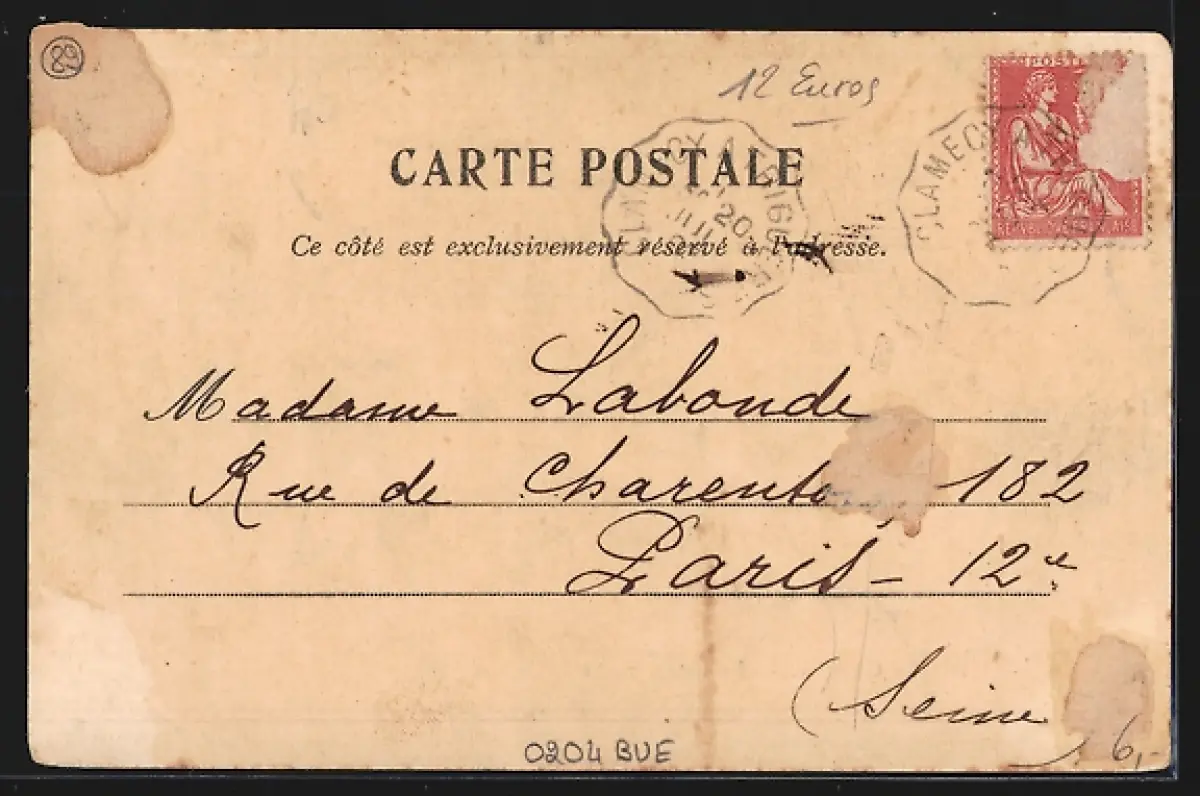 89
12 Euros
POSTE
CARTE POSTALE
CLAMECY
20
Ce côté est exclusivement réservé à l'adresse.
Madame Labonde
Rue de Charenton 182
Paris - 12e
(Seine
6,-
0204 BUE